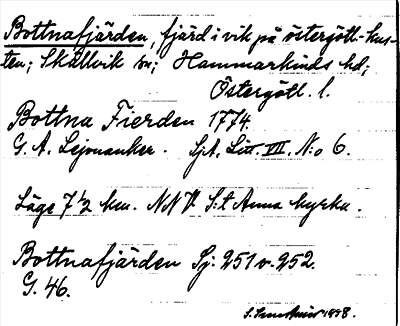 Bottnafjärden, fjärd i vik på östergötl-kus-
ten; Skällvik sn; Hammarkinds hd;
Östergötl. l.
Bottna Fierden 1774.
G. A. Lejonanker. Sjk. Litt. VIII. N:o 6.
Läge 7 1/2 km. NNV. S:t Anna kyrka.
Bottnafjärden Sj: 251 o. 252.
G. 46.
1898.